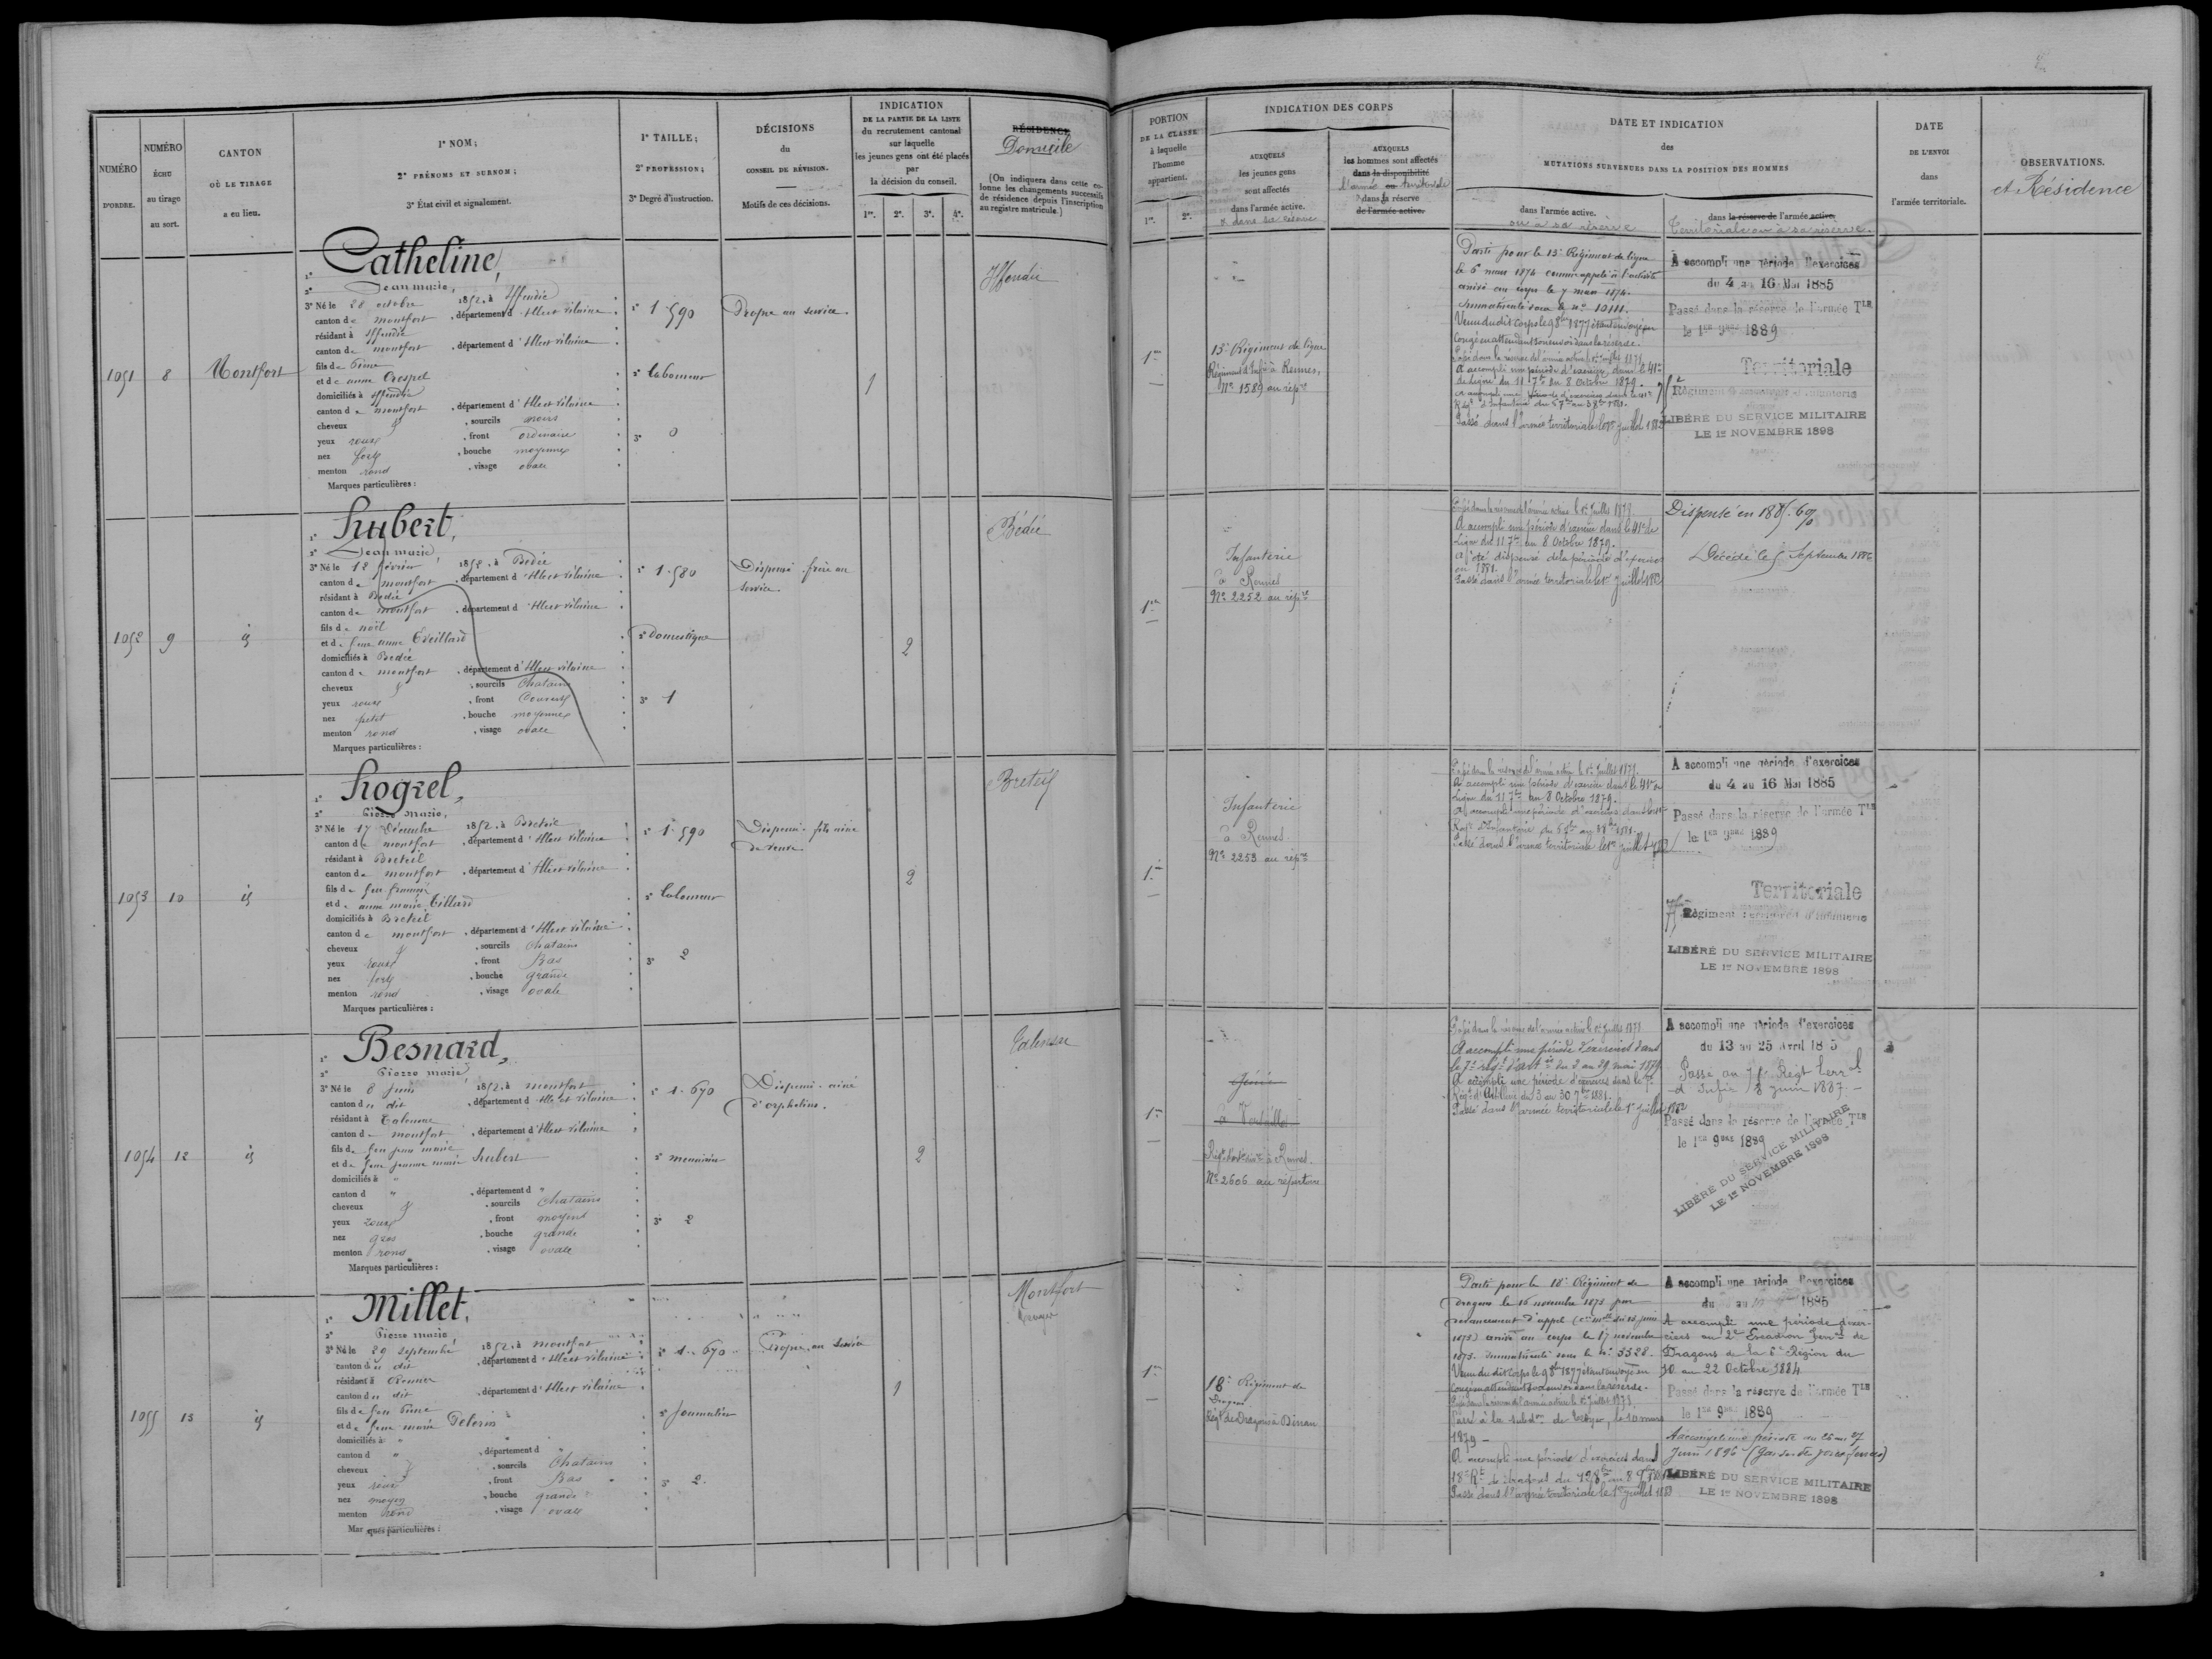 NUMÉRO
D'ORDRE.
NUMÉRO
ÉCHU
au tirage
au sort.
CANTON
OÙ LE TIRAGE
a eu lieu.
1° NOM;
2° PRÉNOMS ET SURNOM;
3° État civil et signalement.
1° TAILLE;
2° PROFESSION;
3° Degré d'instruction.
DÉCISIONS
du
CONSEIL DE RÉVISION.
Motifs de ces décisions.
INDICATION
DE LA PARTIE DE LA LISTE
du recrutement cantonal
sur laquelle
les jeunes gens ont été placés
par
la décision du conseil.
1re. 2e. 3e. 4e.
RÉSIDENCE
Domicile
(On indiquera dans cette co-
lonne les changements successifs
de résidence depuis l'inscription
au registre matricule.)
PORTION
DE LA CLASSE
à laquelle
l'homme
appartient.
1re. 2e.
INDICATION DES CORPS
AUXQUELS
les jeunes gens
sont affectés
dans l'armée active.
& dans sa réserve
AUXQUELS
les hommes sont affectés
dans la disponibilité
l'armée ou territoriale
dans la réserve
de l'armée active.
DATE ET INDICATION
des
MUTATIONS SURVENUES DANS LA POSITION DES HOMMES
dans l'armée active.
ou à sa réserve
dans la réserve de l'armée active.
Territoriale ou à sa réserve.
DATE
DE L'ENVOI
dans
l'armée territoriale.
OBSERVATIONS.
et Résidence
1051 8 Montfort
1° Catheline,
2° Jean marie,
3° Né le 28 octobre 1852, à Iffendic
canton de montfort, département d'Ille et vilaine
résidant à Iffendic
canton de montfort, département d'Ille et vilaine
fils de
et de anne Crespel
domiciliés à Iffendic
canton de montfort, département d'Ille et vilaine
cheveux, sourcils noirs
yeux roux, front ordinaire
nez fort, bouche moyenne
menton rond, visage ovale
Marques particulières :
1° 1.590
2° laboureur
3° 0
Propre au service.
1
Iffendic
1re
13e Régiment de ligne
Régiment d'Infie à Rennes,
No 1589 au répre
Parti pour le 13e Régiment de ligne
le 6 mars 1874 comme appelé à l'activité
arrivé au corps le 7 mars 1874.
Immatriculé sous le no 10111.
Venu du dit corps le 9 8bre 1877 étant envoyé en
congé en attendant son envoi dans la réserve.
Passé dans la réserve de l'armée active le 1er Juillet 1878
A accompli une période d'exercice dans le 41e
de Ligne du 11 7bre au 8 Octobre 1879.
A accompli une période d'exercices dans le 41e
Régt d'Infanterie du
Passé dans l'armée territoriale le 1er Juillet 1882
A accompli une période d'exercices
du 4 au 16 Mai 1885
Passé dans la réserve de l'armée Tle
le 1er 9bre 1889
Territoriale
Régiment d'Infanterie
LIBÉRÉ DU SERVICE MILITAIRE
LE 1er NOVEMBRE 1898
1052 9 id
1° Hubert,
2° Jean marie,
3° Né le 12 février 1852, à Bédée
canton de montfort, département d'Ille et vilaine
résidant à Bédée
canton de montfort, département d'Ille et vilaine
fils de noël
et de feue anne Eveillard
domiciliés à Bédée
canton de montfort, département d'Ille et vilaine
cheveux, sourcils Chatains
yeux roux, front Couvert
nez petit, bouche moyenne
menton rond, visage ovale
Marques particulières :
1° 1.580
2° domestique
3° 1
Dispensé frère au
service.
2
Bédée
1re
Infanterie
à Rennes
No 2252 au répre
Passé dans la réserve de l'armée active le 1er Juillet 1878
A accompli une période d'exercice dans le 41e de
Ligne du 11 7bre au 8 Octobre 1879.
A été dispensé de la période d'exercice
en 1881.
Passé dans l'armée territoriale le 1er Juillet 1882
Dispensé en 1885.
Décédé le 5 Septembre 1886
1053 10 id
1° Hogrel,
2° Pierre marie,
3° Né le 17 Décembre 1852, à Breteil
canton de montfort, département d'Ille et vilaine
résidant à Breteil
canton de montfort, département d'Ille et vilaine
fils de feu françois
et de anne marie Tillard
domiciliés à Breteil
canton de montfort, département d'Ille et vilaine
cheveux, sourcils Chatains
yeux roux, front Bas
nez fort, bouche grande
menton rond, visage ovale
Marques particulières :
1° 1.590
2° laboureur
3° 2
Dispensé. fils ainé
de veuve
2
Breteil
1re
Infanterie
à Rennes.
No 2253 au répre
Passé dans la réserve de l'armée active le 1er Juillet 1878
A accompli une période d'exercice dans le 41e de
Ligne du 11 7bre au 8 Octobre 1879.
A accompli une période d'exercices dans le 41e
Regt d'Infanterie du
Passé dans l'armée territoriale le 1er Juillet 1882
A accompli une période d'exercices
du 4 au 16 Mai 1885
Passé dans la réserve de l'armée Tle
le 1er 9bre 1889
Territoriale
Régiment d'Infanterie
LIBÉRÉ DU SERVICE MILITAIRE
LE 1er NOVEMBRE 1898
1054 12 id
1° Besnard,
2° Pierre marie,
3° Né le 8 juin 1852, à montfort
canton du dit, département d'Ille et vilaine
résidant à Talensac
canton de montfort, département d'Ille et vilaine
fils de feu jean marie
et de feue jeanne marie hubert
domiciliés à "
canton d ", département d "
cheveux, sourcils Chatains
yeux roux, front moyen
nez gros, bouche grande
menton rond, visage ovale
Marques particulières :
1° 1.670
2° menuisier
3° 2
Dispensé. ainé
d'orphelins.
2
Talensac
1re
Génie
à Versailles
Régt d'artillerie à Rennes.
No 2606 au répertoire
Passé dans la réserve de l'armée active le 1er Juillet 1878
A accompli une période d'exercices dans
le 7e régt d'artie du 2 au 29 mai 1879.
A accompli une période d'exercices dans le 7e
Régt d'Artillerie du 3 au 30 7bre 1881.
Passé dans l'armée territoriale le 1er Juillet 1882
A accompli une période d'exercices
du 13 au 25 Avril 1885
Passé au Régt terral
d'Infie 8 juin 1887.
Passé dans la réserve de l'armée Tle
le 1er 9bre 1889
LIBÉRÉ DU SERVICE MILITAIRE
LE 1er NOVEMBRE 1898
1055 13 id
1° Millet,
2° Pierre marie,
3° Né le 29 septembre 1852, à montfort
canton du dit, département d'Ille et vilaine
résidant à
canton du dit, département d'Ille et vilaine
fils de feu
et de feue marie Pelerin
domiciliés à "
canton d ", département d "
cheveux, sourcils Chatains
yeux roux, front Bas
nez moyen, bouche grande
menton rond, visage ovale
Marques particulières :
1° 1.670
2° journalier
3° 2.
Propre au service
1
Montfort
1re
18e Régiment de
Dragons
Régt de Dragons à Dinan
Parti pour le 18e Régiment de
dragons le 16 novembre 1873 par
devancement d'appel
1873) arrivé au corps le 17 novembre
1873. Immatriculé sous le no 3328.
Venu du dit corps le 9 8bre 1877 étant envoyé en
congé en attendant son envoi dans la réserve.
Passé dans la réserve de l'armée active le 1er Juillet 1878
Passé à la subdon de, le 10 mars
1879 -
A accompli une période d'exercices dans le
18e Rt de dragons du
Passé dans l'armée territoriale le 1er juillet 1882
A accompli une période d'exercices
du au 1885
A accompli une période d'exer-
cices au 2e Escadron terral de
Dragons de la Région du
10 au 22 Octobre 1884
Passé dans la réserve de l'armée Tle
le 1er 9bre 1889
A accompli une période du 26 au 27
Juin 1896 (Garde des voies ferrées)
LIBÉRÉ DU SERVICE MILITAIRE
LE 1er NOVEMBRE 1898